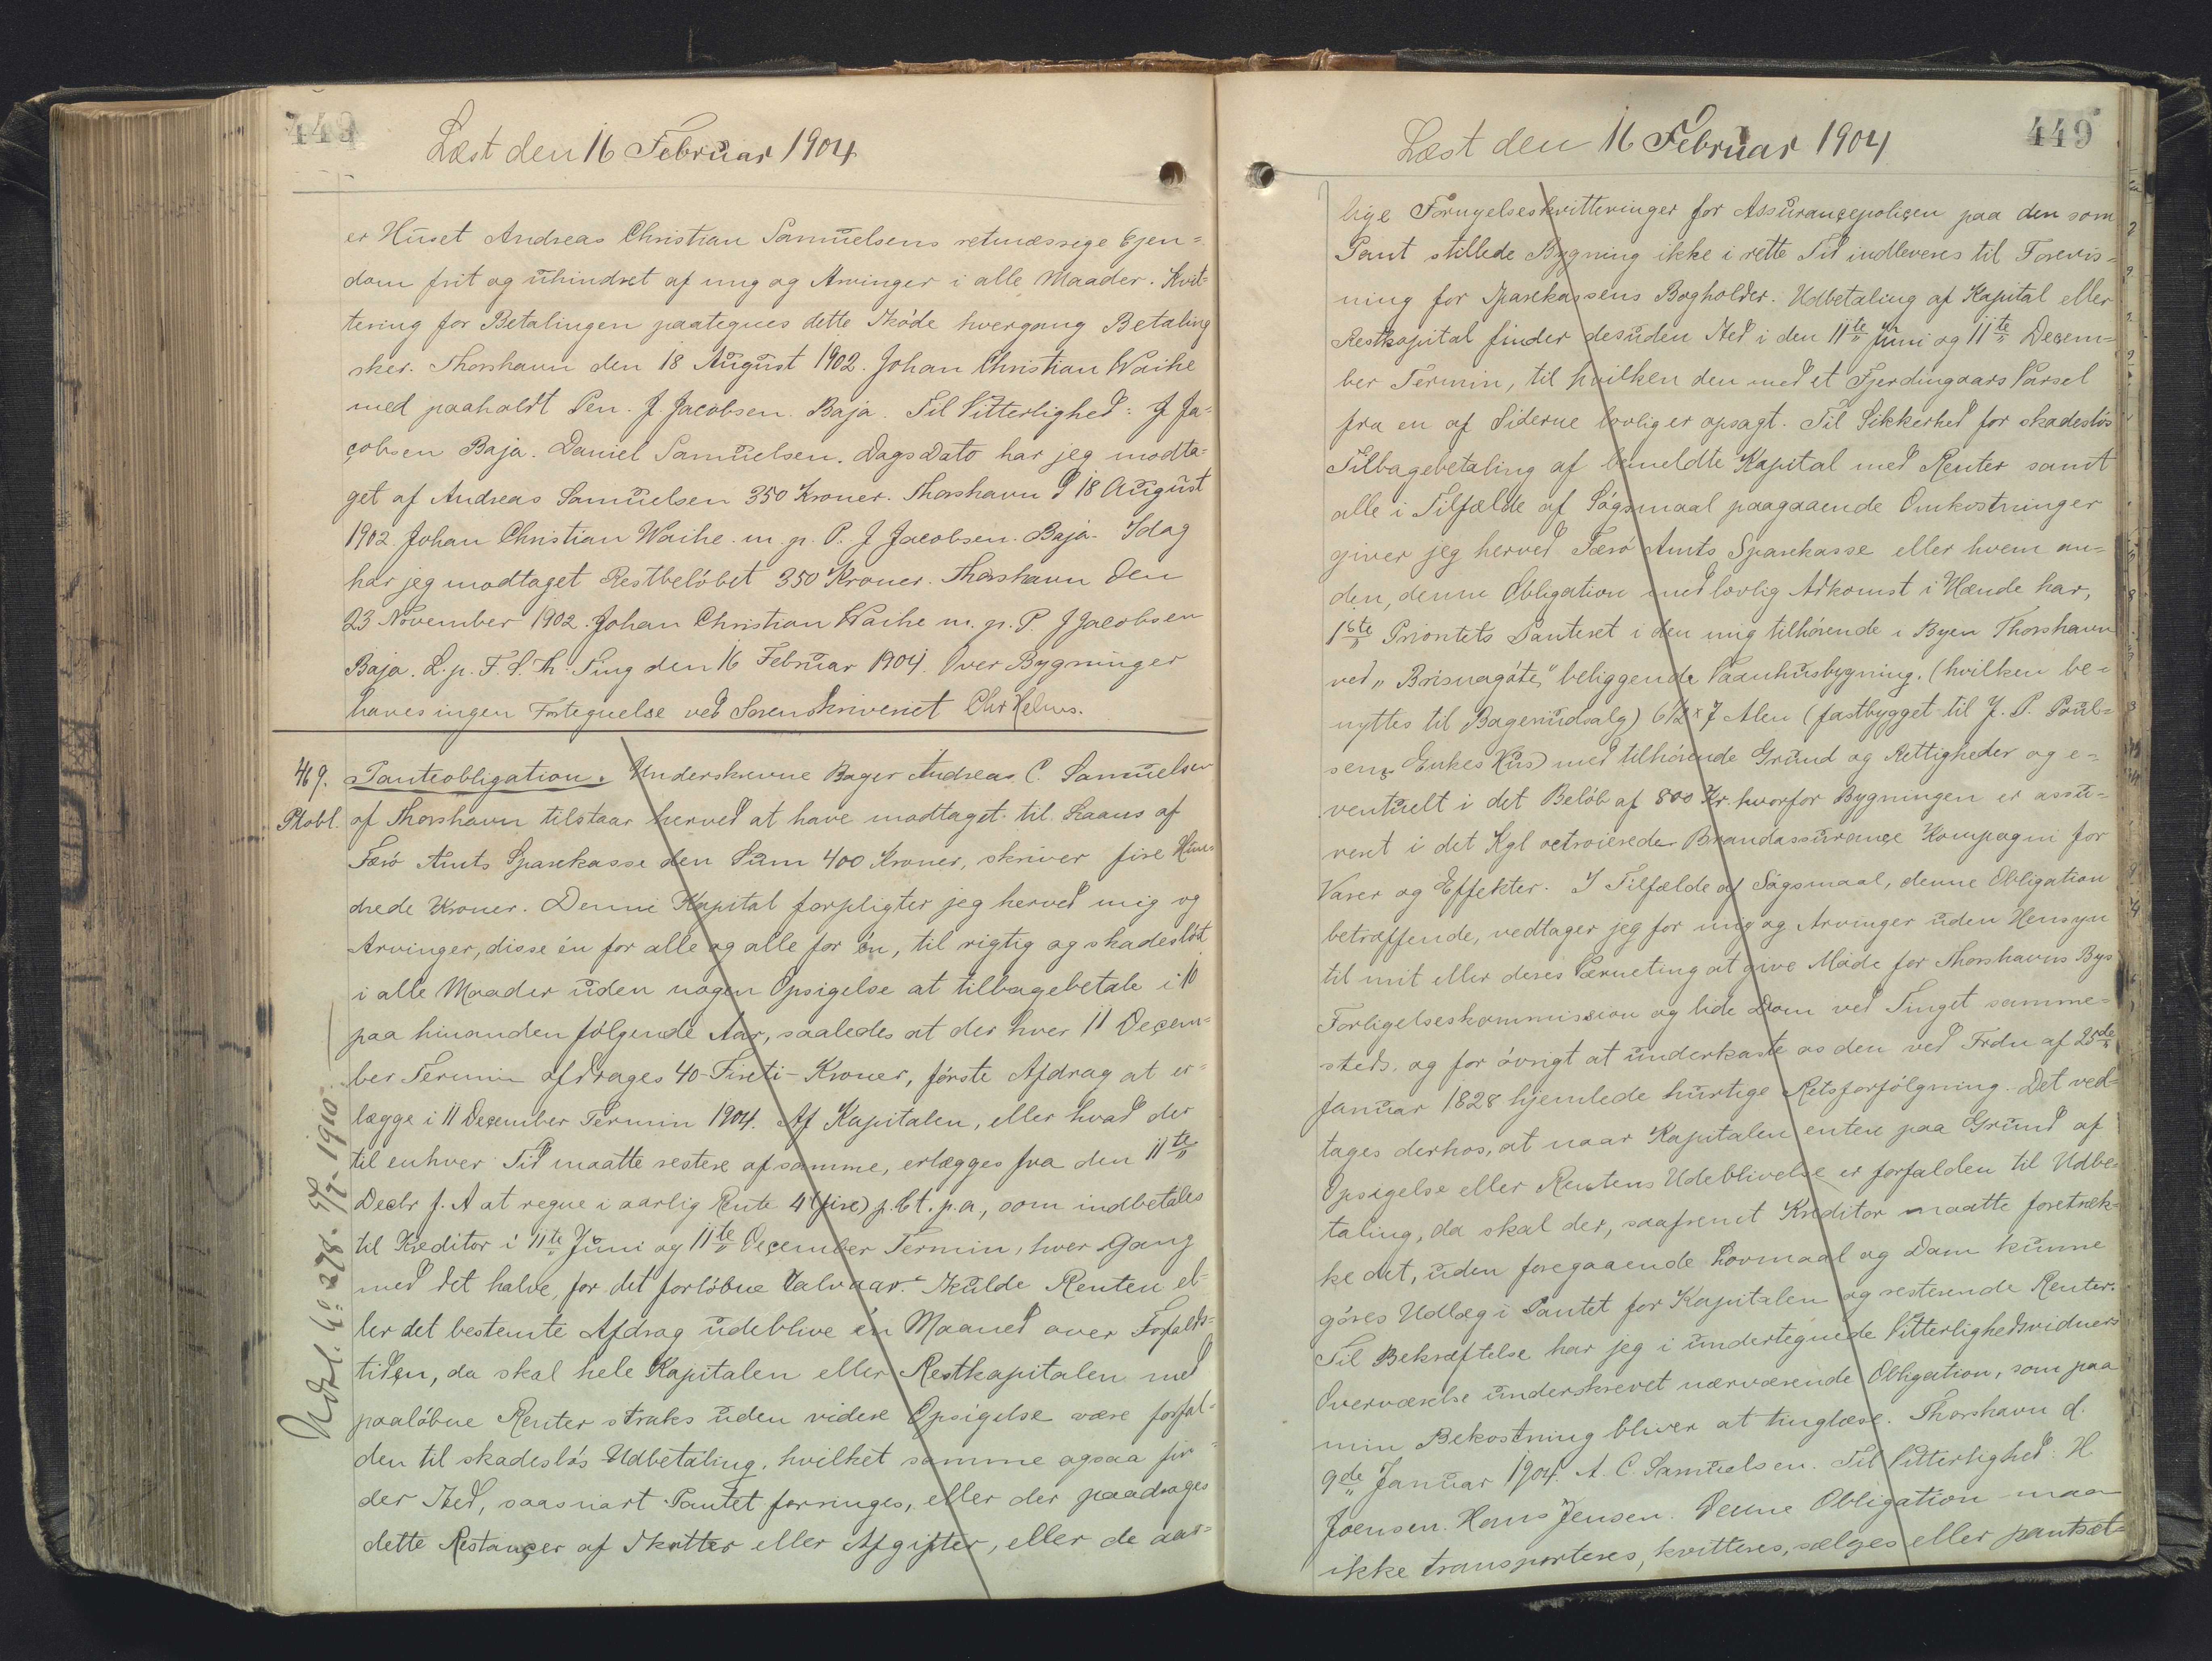 448
Læst den 16 Februar 1904
er Huset Andreas Christian Samuelsens retmæssige Ejen=
dom frit og uhindret af mig og Arvinger i alle Maader. Kvit=
tering for Betalingen paategnes dette Skøde hvergang Betaling
sker. Thorshavn den 18 August 1902. Johan Christian Waihe
med paaholdt Pen. J. Jacobsen. Baja. Til Vitterlighed: J Ja=
cobsen Baja. Daniel Samuelsen. Dags Dato har jeg modta=
get af Andreas Samuelsen 350 Kroner. Thorshavn d 18 August
1902 Johan Christian Waihe. m. p. P. J Jacobsen. Baja. Idag
har jeg modtaget Restbeløbet 350 Kroner. Thorshavn den
23 November 1902. Johan Christian Waihe m. p. P. J Jacobsen
Baja. L. p. F. S. Th. Ting den 16 Februar 1904. Over Bygninger
haves ingen Fortegnelse ved Sorenskriveriet Chr Helms.
469. Panteobligation. Underskrevne Bager Andreas C. Samuelsen
Ptobl. af Thorshavn tilstaar herved at have modtaget til Laans af
Færø Amts Sparekasse den Sum 400 Kroner, skriver fire Hun=
drede Kroner. Denne Kapital forpligter jeg herved mig og
Arvinger, disse én for alle og alle for én, til rigtig og skadesløst
i alle Maader uden nogen Opsigelse at tilbagebetale i 10
paa hinanden følgende Aar, saaledes at der hver 11 Decem=
ber Termin afdrages 40-Fireti-Kroner, første Afdrag at er=
lægge i 11 December Termin 1904. Af Kapitalen, eller hvad der
til enhver Tid maatte restere af samme, erlægges fra den 11te
Decbr f. A at regne i aarlig Rente 4 (fire) p. Ct. p. a., som indbetales
til Kreditor i 11te Juni og 11te December Termin, hver Gang
med det halve, for det forløbne Halvaar. Skulde Renten el=
ler det bestemte Afdrag udeblive én Maaned over Forfalds=
tiden, da skal hele Kapitalen eller Restkapitalen med
paaløbne Renter straks uden videre Opsigelse være forfal=
den til skadesløs Udbetaling, hvilket samme ogsaa fin=
der Sted, saasnart Pantet forringes, eller der paadrages
dette Restancer af Skatter eller Afgifter, eller de aar=
449
Læst den 16 Februar 1904
lige Fornyelseskvitteringer for Assurancepolicen paa den som
Pant stillede Bygning ikke i rette Tid indleveres til Forevis=
ning for Sparekassens Bogholder. Udbetaling af Kapital eller
Restkapital finder desuden Sted i den 11te Juni og 11te Decem=
ber Termin, til hvilken den med et Fjerdingaars Varsel
fra en af Siderne lovlig er opsagt. Til Sikkerhed for skadesløs
Tilbagebetaling af bemeldte Kapital med Renter samt
alle i Tilfælde af Søgsmaal paagaaende Omkostninger
giver jeg herved Færø Amts Sparekasse eller hvem an=
den, denne Obligation med lovlig Adkomst i Hænde har,
1ste Prioritets Panteret i den mig tilhørende i Byen Thorshavn
ved "Brisnagøte" beliggende Vaanhusbygning. (hvilken be=
nyttes til Bageriudsalg) 6½ x 7 Alen (fastbygget til J. P. Poul=
sens Enkes Hus) med tilhørende Grund og Rettigheder og e=
ventuelt i det Beløb af 800 Kr. hvorfor Bygningen er assu=
reret i det Kgl octroierede Brandassurance Kompagni for
Varer og Effekter. I Tilfælde af Søgsmaal, denne Obligation
betræffende, vedtager jeg for mig og Arvinger uden Hensyn
til mit eller deres Værneting at give Møde for Thorshavns Bys
Forligelseskommission og lide Dom ved Tinget samme=
steds, og for øvrigt at underkaste os den ved Frdn af 25de
Januar 1828 hjemlede hurtige Retsforfølgning. Det ved=
tages derhos, at naar Kapitalen enten paa Grund af
Opsigelse eller Rentens Udeblivelse er forfalden til Udbe=
taling, da skal der, saafremt Kreditor maatte foretræk=
ke det, uden foregaaende Lovmaal og Dom kunne
gøres Udlæg i Pantet for Kapitalen og resterende Renter.
Til Bekræftelse har jeg i undertegnede Vitterlighedsvidners
Overværelse underskrevet nærværende Obligation, som paa
min Bekostning bliver at tinglæse. Thorshavn d.
9de Januar 1904. A. C. Samuelsen. Til Vitterlighed: H.
Joensen. Hans Jensen. Denne Obligation maa
ikke transporteres, kvitteres, sælges eller pantsæt=